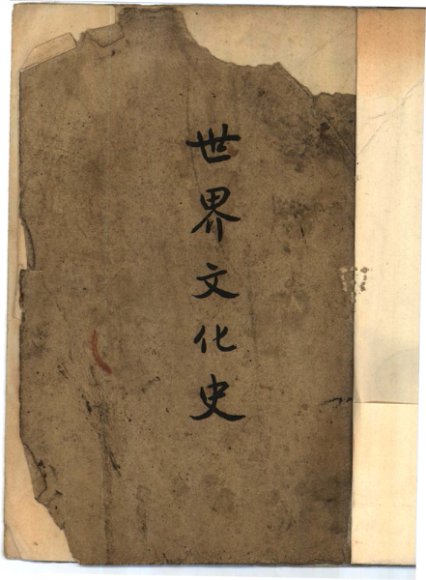 世界文化史